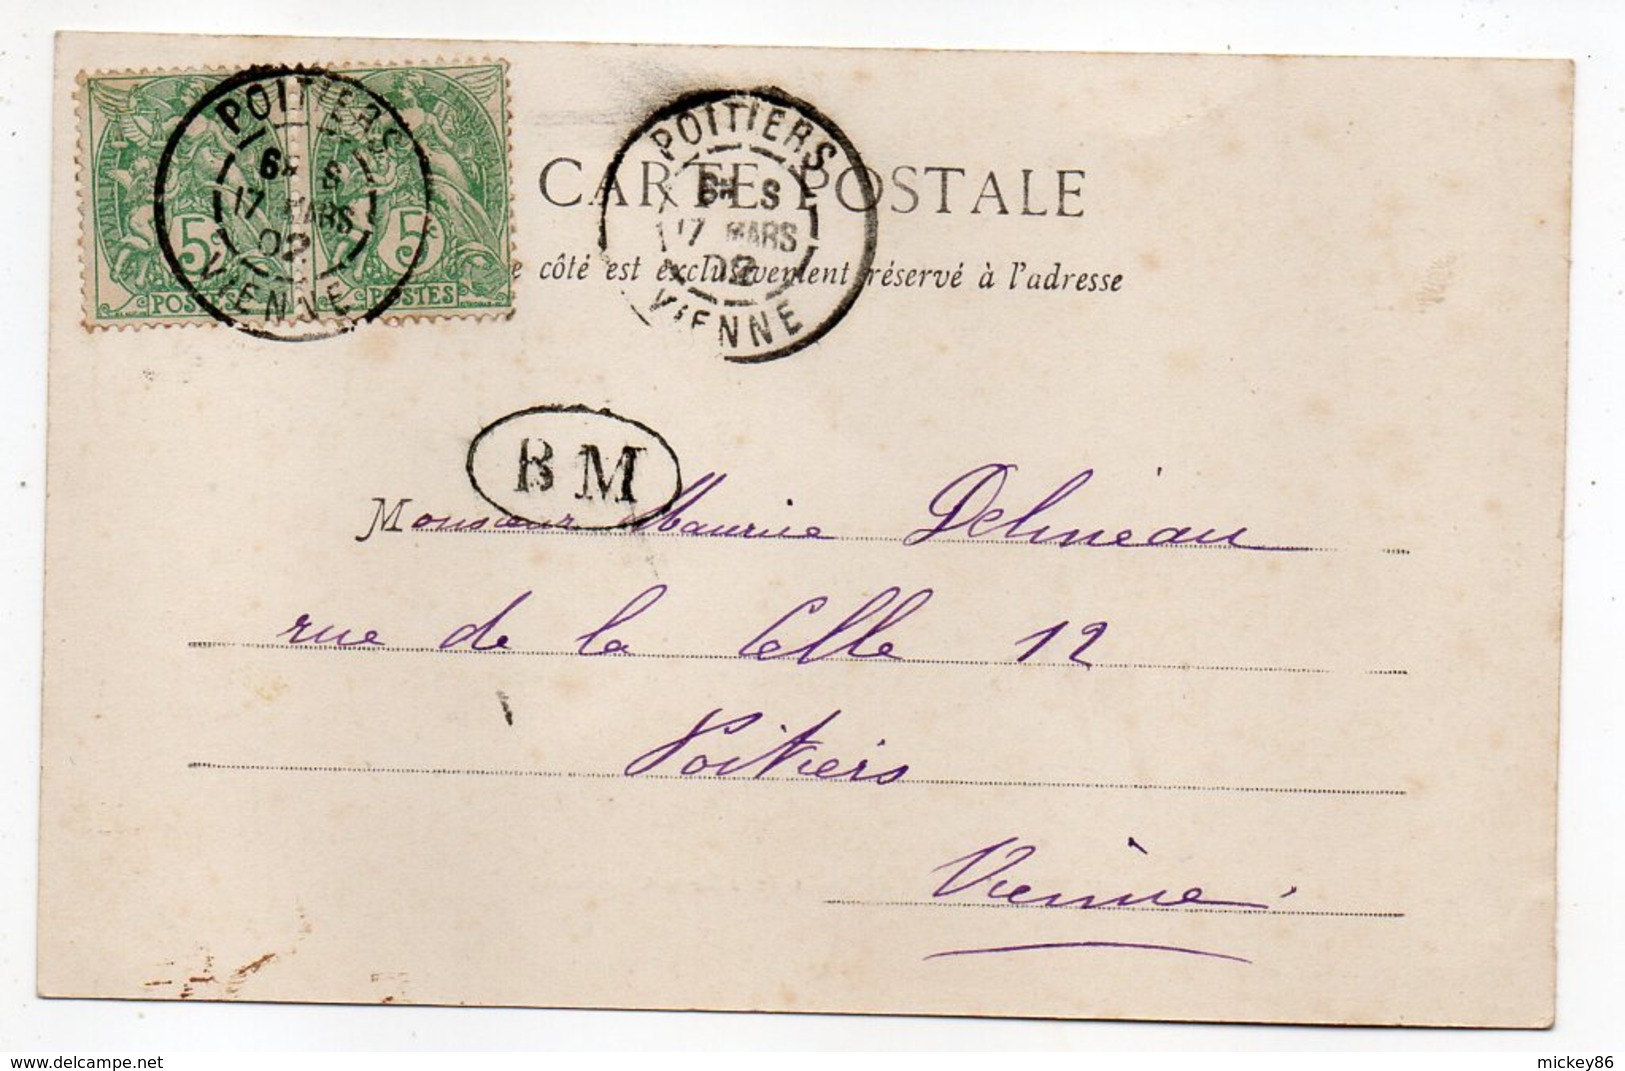 POITIERS
6H S
17 MARS
02
VIENNE
5c
POSTES
5c
POSTES
POITIERS
6H S
17 MARS
02
VIENNE
CARTE POSTALE
e côté est exclusivement réservé à l'adresse
BM
Monsieur Maurice Delineau
rue de la Celle 12
Poitiers
Vienne.
delcampe.net
mickey86